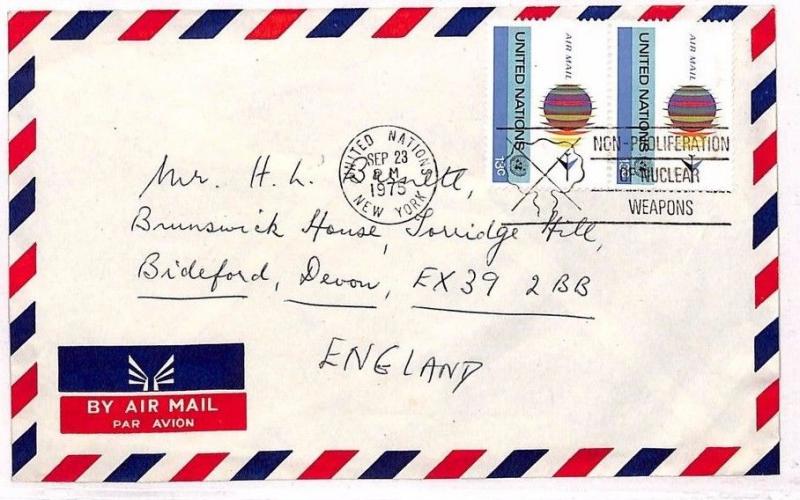 UNITED NATIONS AIR MAIL 13c
UNITED NATIONS AIR MAIL 13c
UNITED NATIONS
SEP 23
PM
1975
NEW YORK
NON-PROLIFERATION
OF NUCLEAR
WEAPONS
Mr. H. L.
Brunswick House, Torridge Hill,
Bideford, Devon, EX39 2BB
ENGLAND
BY AIR MAIL
PAR AVION